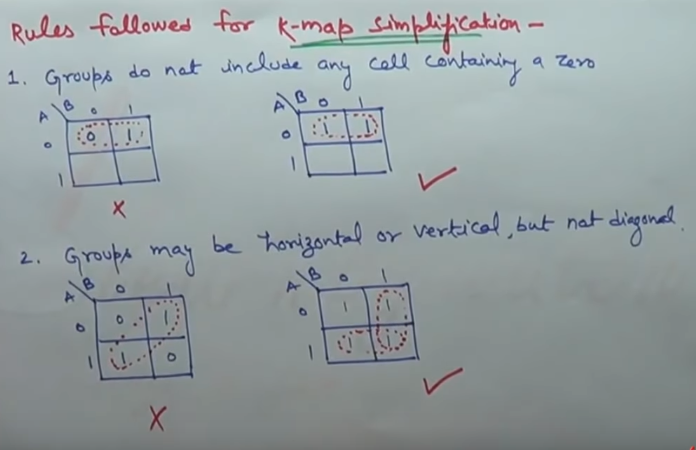 Rules followed for K-map simplification -
1. Groups do not include any cell containing a zero
A B 0 1 A B 0 1
0 0 1 0 1 1
1 1
X ✓
2. Groups may be horizontal or vertical, but not diagonal.
A B 0 1 A B 0 1
0 0 1 0 1 1
1 1 0 1 1 1
X ✓